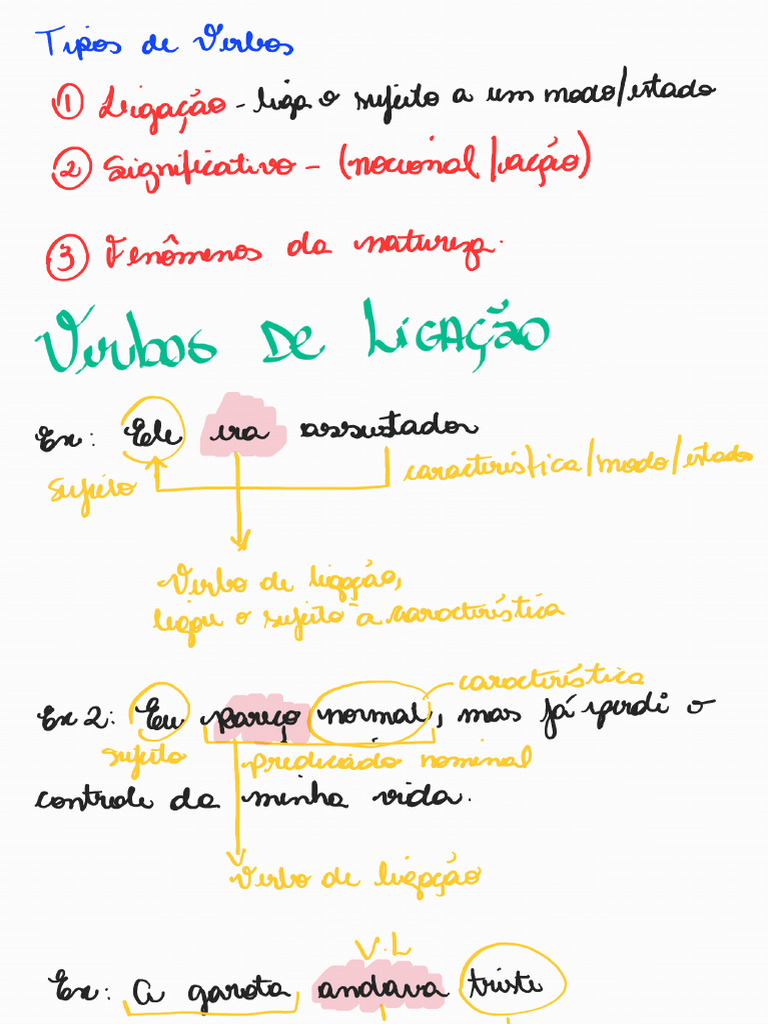 Tipos de Verbos
① Ligação - liga o sujeito a um modo/estado
② Significativo - (nocional/ação)
③ Fenômenos da natureza.
Verbos DE LIGAÇÃO
Ex: Ele era assustador
sujeito
característica/modo/estado
Verbo de ligação,
ligou o sujeito à característica
característica
Ex 2: Eu pareço normal, mas já perdi o
sujeito
predicado nominal
controle da minha vida.
Verbo de ligação
V.L
Ex: A garota andava triste